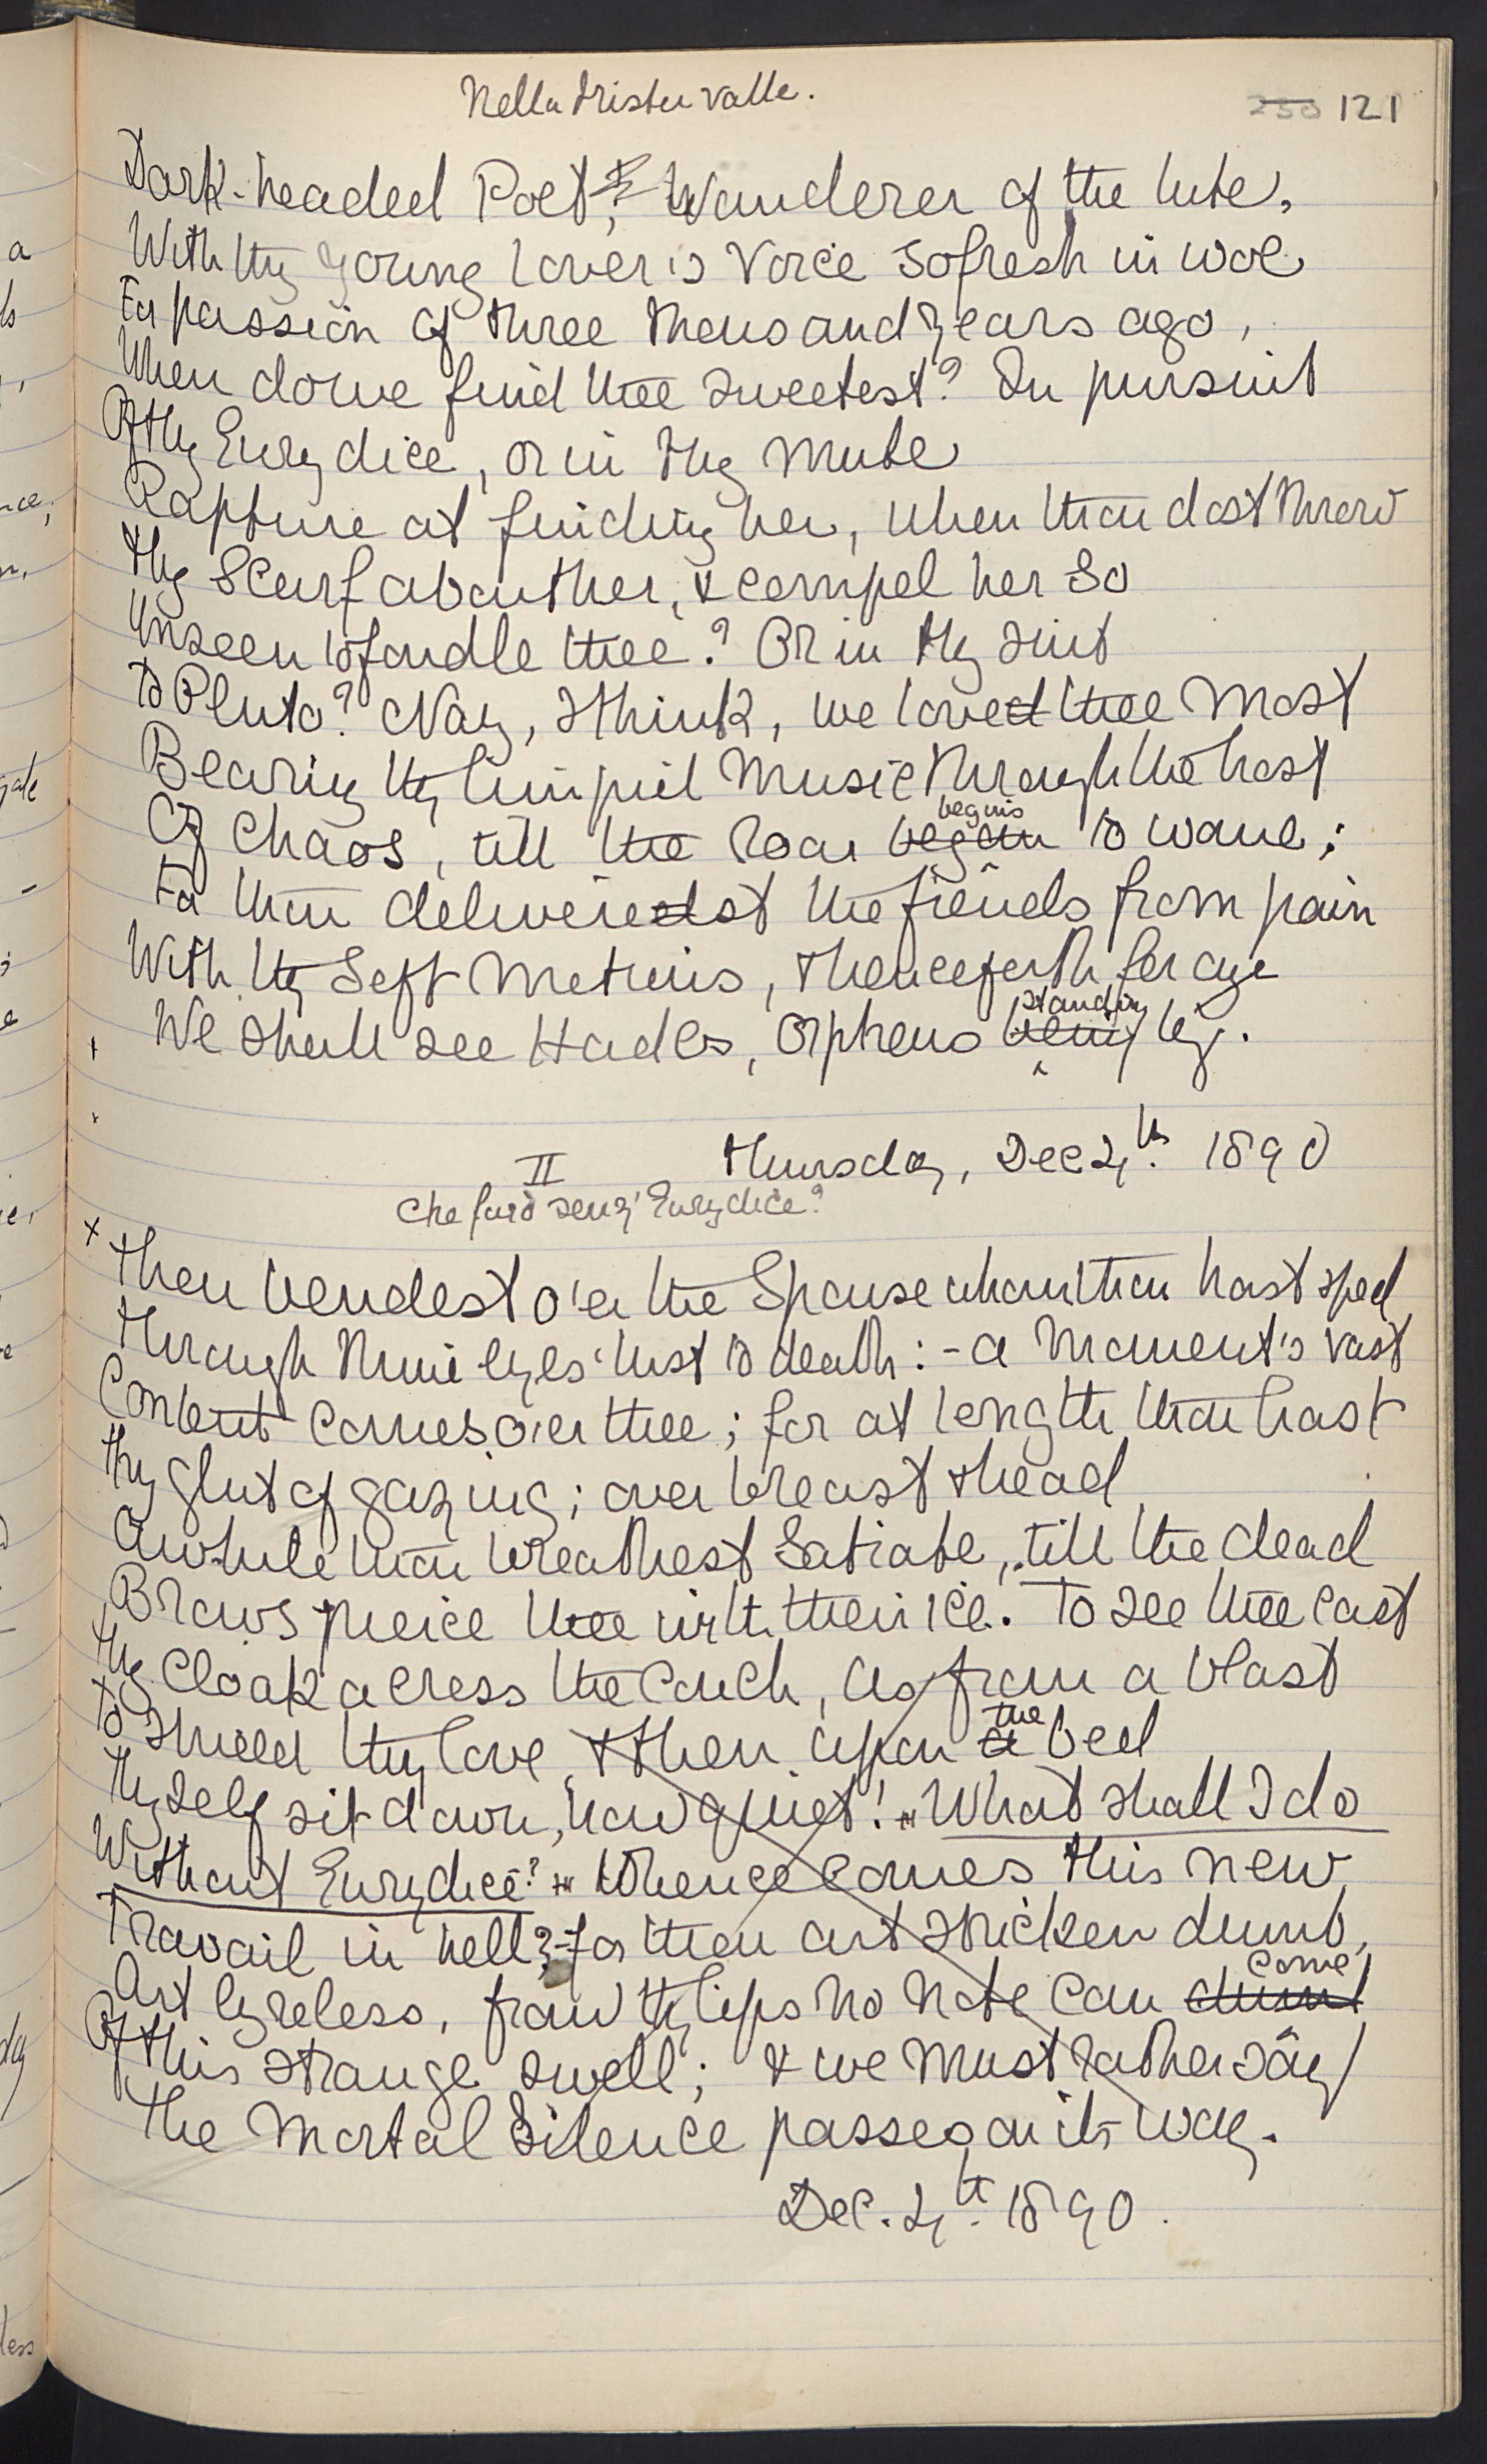 Nella trista valle.
250 121
Dark-headed Poet, & Wanderer of the lute,
With thy young lover's voice so fresh in woe
For passion of three thousand years ago,
When do we find thee sweetest? In pursuit
Of thy Eurydice, or in thy mute
Rapture at finding her, when thou dost throw
Thy Scarf about her, & compel her so
Unseen to fondle thee? Or in thy suit
To Pluto? Nay, I think, we loved thee most
Bearing thy limpid music through the host
begins
Of Chaos, till the roar began to wane;
For thou deliveredst the fiends from pain
With thy soft metres, & henceforth for aye
standing
We shall see Hades, Orpheus being by.
Thursday, Dec 4th. 1890
II
Che farò senz' Eurydice?
x Thou bendest o'er the Spouse whom thou hast sped
Through thine eyes' lust to death: - a moment's vast
Content comes o'er thee; for at length thou hast
Thy glut of gazing; over breast & head
Awhile thou breathest satiate, till the dead
Brows pierce thee with their ice. To see thee cast
Thy Cloak across the couch, as from a blast
the
To shield thy love, & then upon a bed
Thyself sit down, how quiet! "What shall I do
Without Eurydice?" Whence comes this new
Travail in hell? - for thou art stricken dumb,
come
Art lyreless, from thy lips no note can
Of this strange swell; & we must rather say
The Mortal Silence passes on its way.
Dec. 4th. 1890.